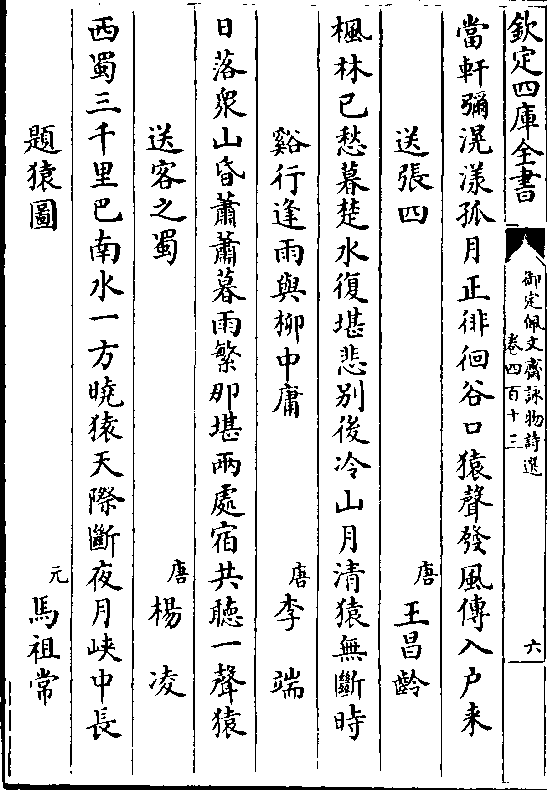 欽定四庫全書
御定佩文齋詠物詩選
卷四百十三
六
當軒彌滉漾孤月正徘徊谷口猿聲發風傳入户来
送張四
唐 王昌齡
楓林已愁暮楚水復堪悲别後冷山月清猿無斷時
谿行逢雨與柳中庸
唐 李端
日落衆山昏蕭蕭暮雨繁那堪兩處宿共聽一聲猿
送客之蜀
唐 楊凌
西蜀三千里巴南水一方曉猿天際斷夜月峽中長
題猿圖
元 馬祖常